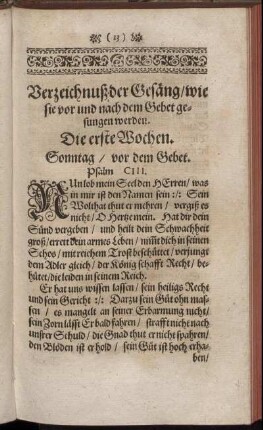 (15)
Verzeichnuß der Gesäng / wie
sie vor und nach dem Gebet ge-
sungen werden.
Die erste Wochen.
Sonntag / vor dem Gebet.
Psalm CIII.
NUn lob mein Seel den HErren / was
in mir ist den Namen sein :/: Sein
Wolthat thut er mehren / vergiß es
nicht / O Hertze mein. Hat dir dein
Sünd vergeben / und heilt dein Schwachheit
groß / errett dein armes Leben / nimt dich in seinen
Schos / mit reichem Trost beschüttet / verjungt
dem Adler gleich / der König schafft Recht / be-
hütet / die leiden in seinem Reich.
Er hat uns wissen lassen / sein heiliges Recht
und sein Gericht :/: Darzu sein Güt ohn mas-
sen / es mangelt an seiner Erbarmung nicht /
sein Zorn lässt Er bald fahren / strafft nicht nach
unsrer Schuld / die Gnad thut er nicht spahren /
den Blöden ist er hold / sein Güt ist hoch erha-
ben /